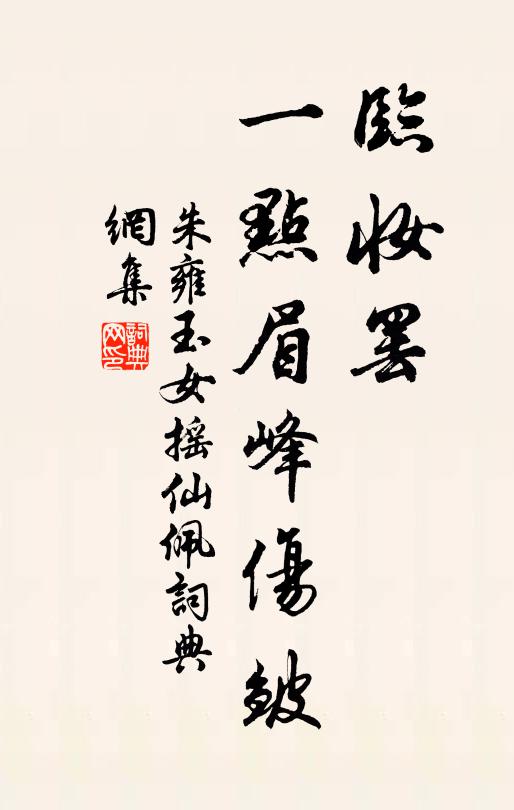 臨妝罷
一點眉峰傷皺
朱雍玉女摇仙佩詞典
網集
詞典網印